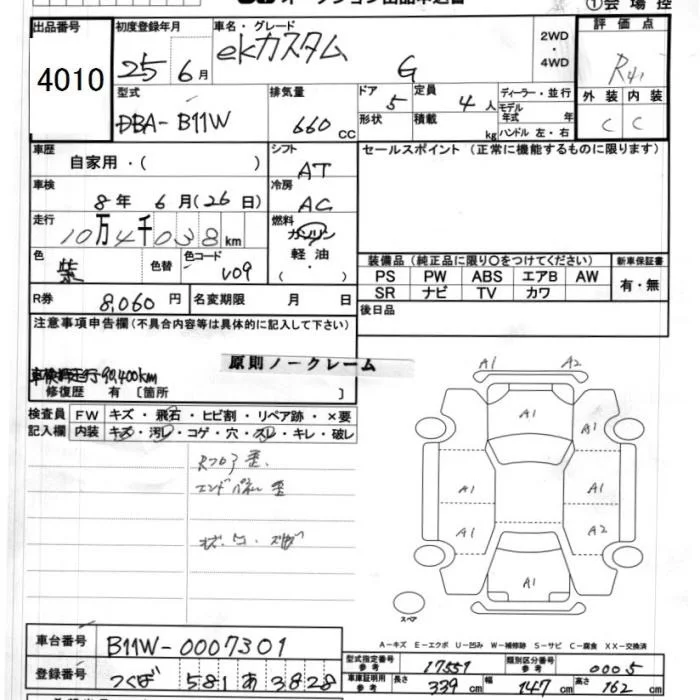 ①会場控
出品番号
4010
初度登録年月
25 6月
車名・グレード
ekカスタム G
2WD
・
4WD
評価点
R41
外装 内装
C C
型式
DBA-B11W
排気量
660 CC
ドア 5
形状
定員 4人
積載 kg
ディーラー・並行
モデル年式 年
ハンドル 左・右
車歴
自家用・( )
シフト
AT
セールスポイント(正常に機能するものに限ります)
車検
8年 6月(26日)
冷房
AC
走行
10万4千038km
燃料
ガソリン
軽油
( )
色
紫
色替
色コード
U09
装備品(純正品に限り○をつけてください)
PS PW ABS エアB AW
SR ナビ TV カワ
新車保証書
有・無
R券 8,060円
名変期限 月 日
後日品
注意事項申告欄(不具合内容等は具体的に記入して下さい)
原則ノークレーム
90,400km
修復歴 有 〔箇所 〕
検査員記入欄
FW キズ・飛石・ヒビ割・リペア跡・×要
内装 キズ・汚レ・コゲ・穴・スレ・キレ・破レ
Rフロア歪
エンドパネル歪
A1 A2
A1 A1
A1 A1
A1 A2
A1
スペア
A-キズ E-エクボ U-凹み W-補修跡 S-サビ C-腐食 XX-交換済
車台番号
B11W-0007301
登録番号
つくば 581 あ 3828
型式指定番号 参考
17551
類別区分番号 参考
0005
車庫証明用 参考
長さ 339cm
幅 147cm
高さ 162cm